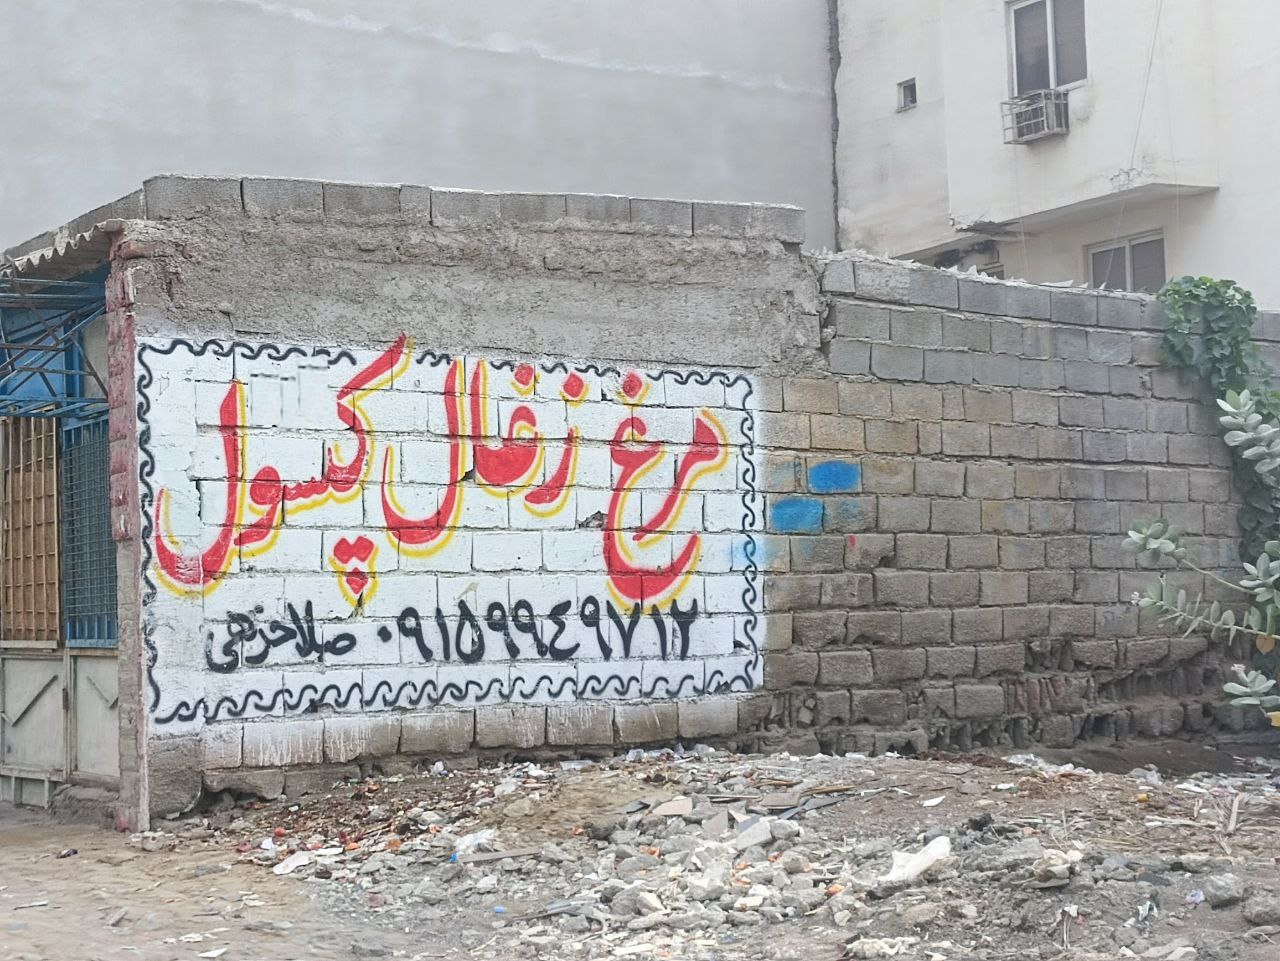 مرغ زغال کپسول
۰۹۱۵۹۹۴۹۷۱۲ صلاحزهی